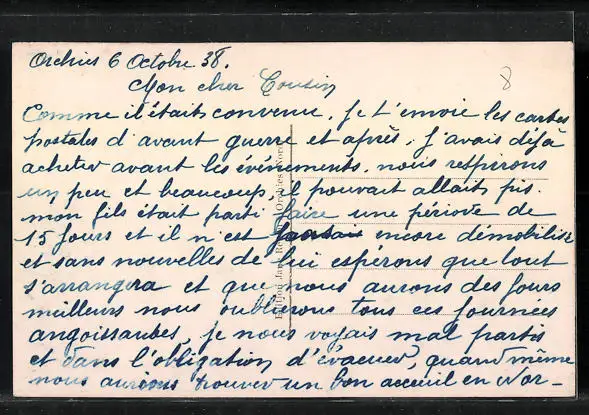 Orchies 6 Octobre 38.
8
Mon cher Cousin
Comme il était convenu, je t'envoie les cartes
postales d'avant guerre et après. j'avais déjà
acheter avant les événements. nous respirons
un peu et beaucoup, il pouvait allait pis.
mon fils était parti faire une période de
15 jours et il n'est encore démobilisé
et sans nouvelles de lui espérons que tout
s'arrangera et que nous aurons des jours
meilleurs nous oublierons tous ces journées
angoissantes, je nous voyais mal partis
et dans l'obligation d'évacuer, quand même
nous aurions trouver un bon acceuil en Nor-
Orchies (Nord)